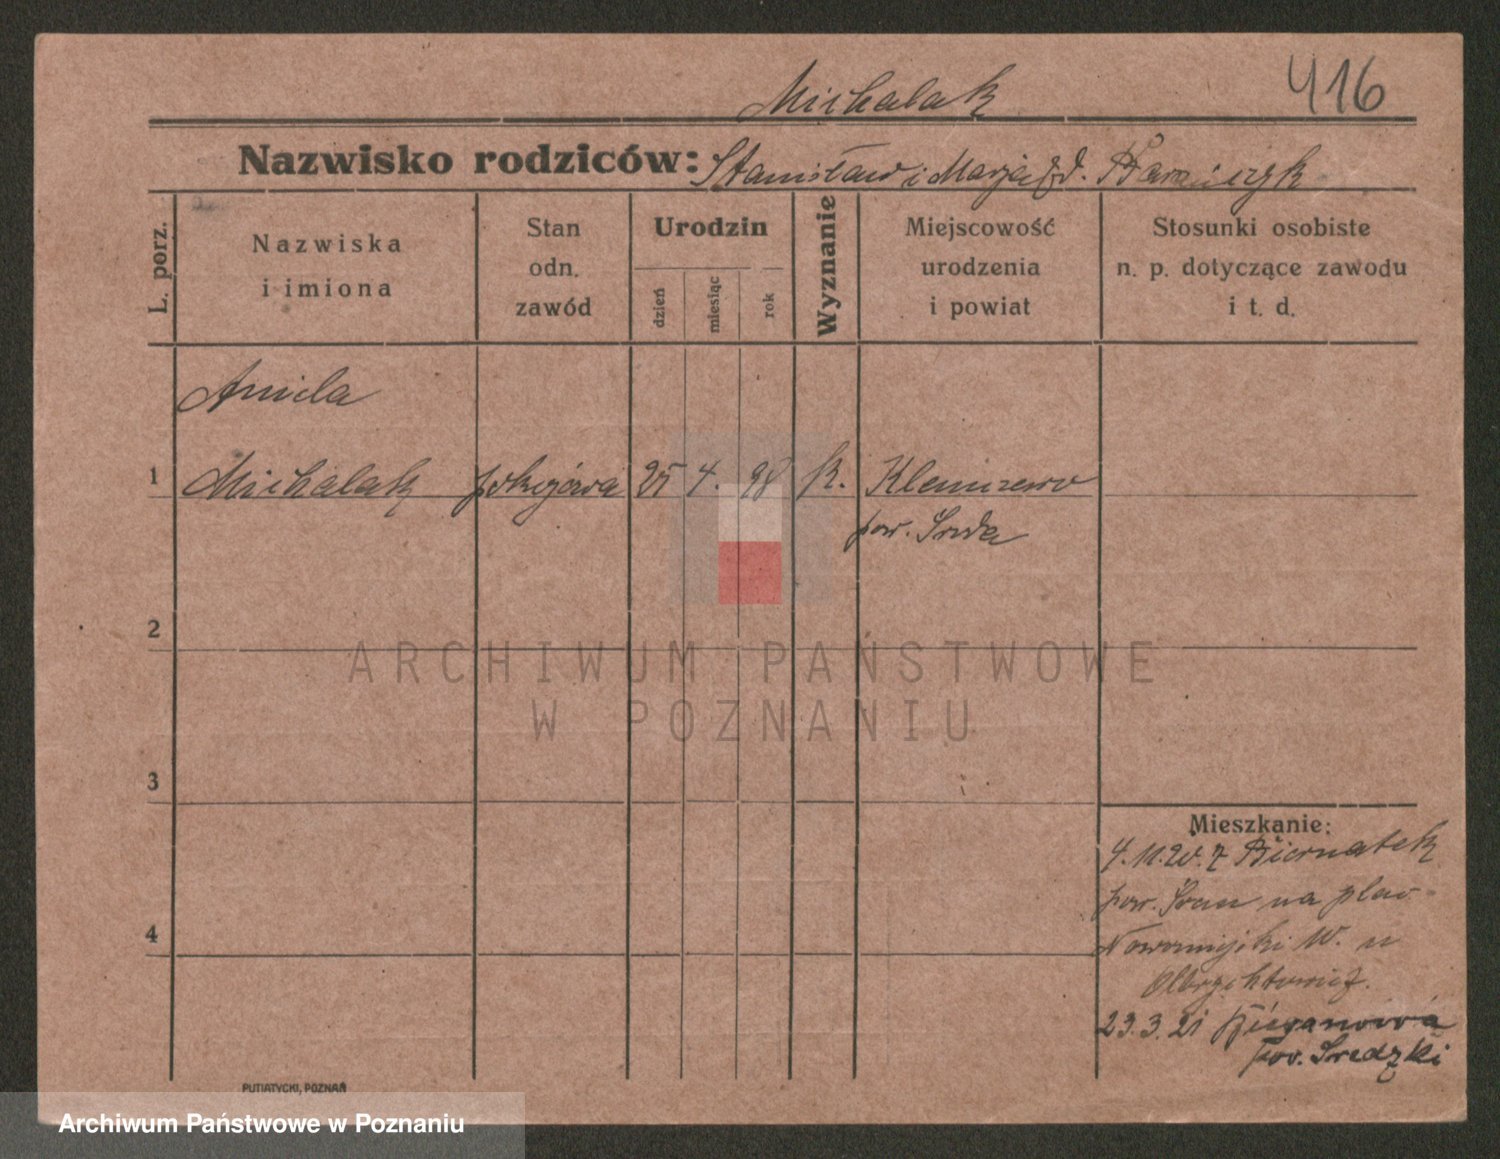 416
Michalak
Nazwisko rodziców: Stanisław i Marja
L. porz.
Nazwiska
i imiona
Stan
odn.
zawód
Urodzin
dzień
miesiąc
rok
Wyznanie
Miejscowość
urodzenia
i powiat
Stosunki osobiste
n. p. dotyczące zawodu
i t. d.
Aniela
1 Michalak pokojówa 25 4. 98 k.
pow. Środa
2
3
4
Mieszkanie:
4.11.20. z Biernatek
pow. na plac
Nowomiejski
23.3.21
pow. Sredzki
PUTIATYCKI, POZNAŃ
ARCHIWUM PAŃSTWOWE
W POZNANIU
Archiwum Państwowe w Poznaniu